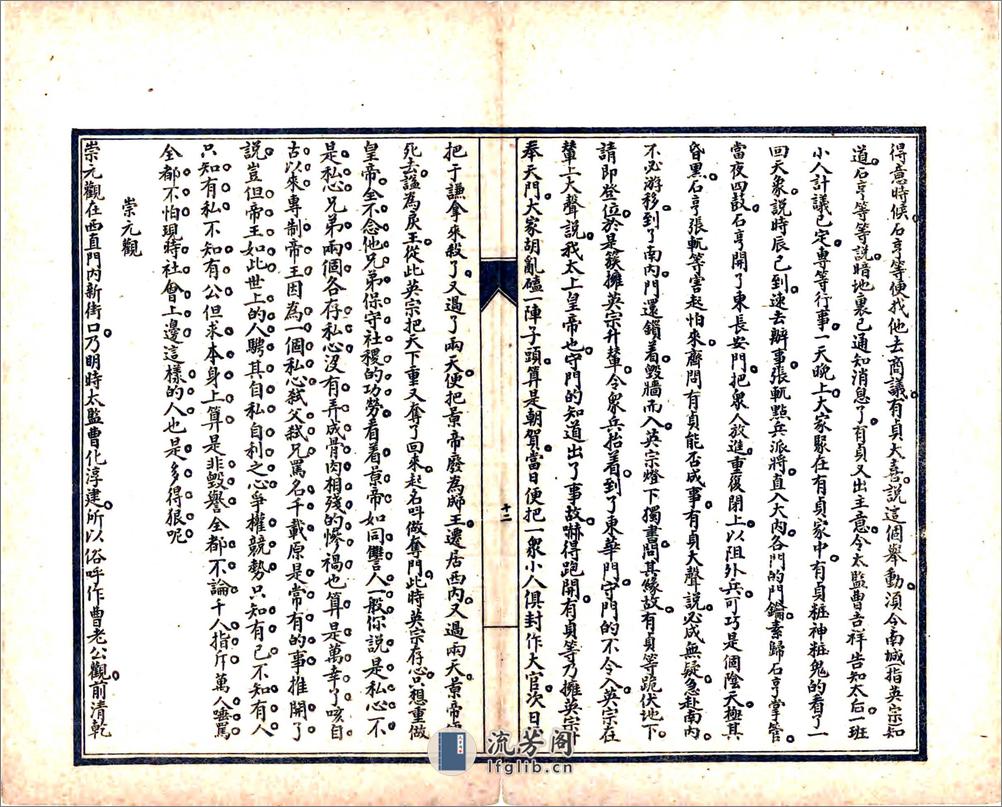 得意時候石亨等便找他去商議有貞大喜說這個舉動須令南城指英宗知
道石亨等等說暗地裏已通知消息了有貞又出主意令太監曹吉祥告知太后一班
小人計議已定專等行事一天晚上大家聚在有貞家中有貞粧神粧鬼的看了一
回天象說時辰已到速去辦事張軏點兵派將直入大內各門的門鑰素歸石亨掌管
當夜四鼓石亨開了東長安門把眾人放進重復閉上以阻外兵可巧是個陰天極其
昏黑石亨張軏等害起怕來齊問有貞能否成事有貞大聲說必成無疑急赴南內
不必游移到了南內門還鎖着毀牆而入英宗燈下獨書問其緣故有貞等跪伏地下
請即登位於是簇擁英宗升輦令眾兵抬着到了東華門守門的不令入英宗在
輦上大聲說我太上皇帝也守門的知道出了事故嚇得跑開有貞等乃擁英宗
奉天門大家胡亂磕一陣子頭算是朝賀當日便把一眾小人俱封作大官次日
十二
把于謙拿來殺了又過了兩天便把景帝廢為郕王遷居西內又過兩天景帝
死去謚為戾王從此英宗把天下重又奪了回來起名叫做奪門此時英宗存心只想重做
皇帝全不念他兄弟保守社稷的功勞看着景帝如同讐人一般你說是私心不
是私心兄弟兩個各存私心沒有弄成骨肉相殘的慘禍也算是萬幸了咳自
古以來專制帝王因為一個私心弒父弒兄罵名千載原是常有的事推開了
說豈但帝王如此世上的人騁其自私自利之心爭權競勢只知有己不知有人
只知有私不知有公但求本身上算是非毀譽全都不論千人指斥萬人唾罵
全都不怕現時社會上邊這樣的人也是多得狠呢
崇元觀
崇元觀在西直門內新街口乃明時太監曹化淳建所以俗呼作曹老公觀前清乾
流芳阁
lfglib.cn